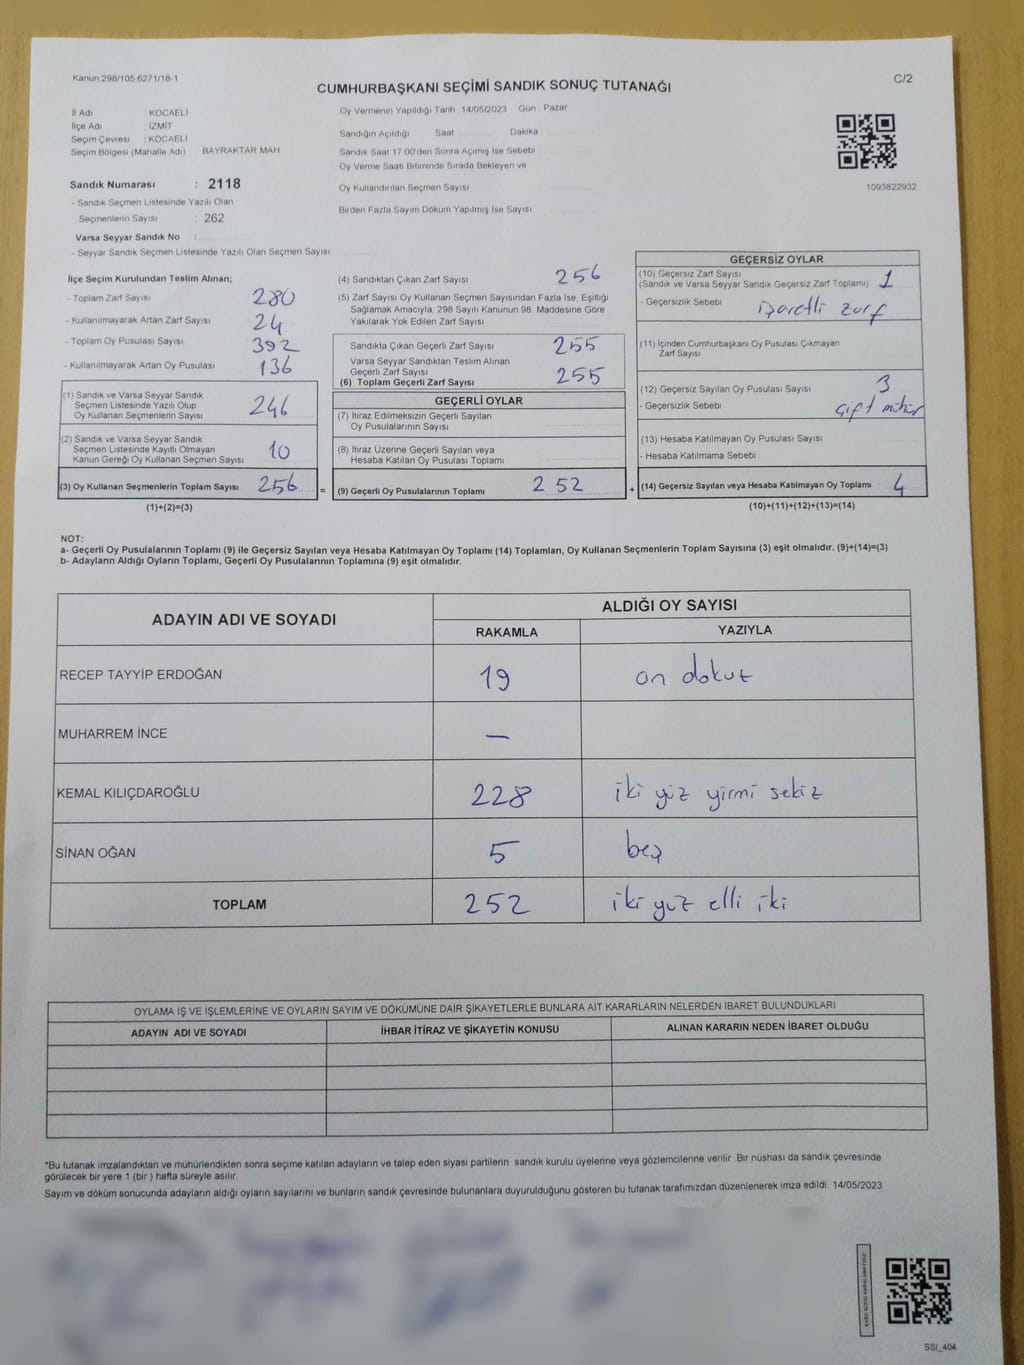 Kanun,298/105.6271/18-1
C/2
CUMHURBAŞKANI SEÇİMİ SANDIK SONUÇ TUTANAĞI
İl Adı KOCAELİ
İlçe Adı İZMİT
Seçim Çevresi : KOCAELİ
Seçim Bölgesi (Mahalle Adı) BAYRAKTAR MAH
Sandık Numarası : 2118
- Sandık Seçmen Listesinde Yazılı Olan
Seçmenlerin Sayısı : 262
Varsa Seyyar Sandık No :
- Seyyar Sandık Seçmen Listesinde Yazılı Olan Seçmen Sayısı
Oy Vermenin Yapıldığı Tarih 14/05/2023 Gün Pazar
Sandığın Açıldığı Saat Dakika
Sandık Saat 17:00'den Sonra Açımış İse Sebebi
Oy Verme Saati Bitiminde Sırada Bekleyen ve
Oy Kullandırılan Seçmen Sayısı
Birden Fazla Sayım Döküm Yapılmış İse Sayısı
1093822932
İlçe Seçim Kurulundan Teslim Alınan;
- Toplam Zarf Sayısı 280
- Kullanılmayarak Artan Zarf Sayısı 24
- Toplam Oy Pusulası Sayısı 392
- Kullanılmayarak Artan Oy Pusulası 136
(1) Sandık ve Varsa Seyyar Sandık
Seçmen Listesinde Yazılı Olup
Oy Kullanan Seçmenlerin Sayısı 246
(2) Sandık ve Varsa Seyyar Sandık
Seçmen Listesinde Kayıtlı Olmayan
Kanun Gereği Oy Kullanan Seçmen Sayısı 10
(3) Oy Kullanan Seçmenlerin Toplam Sayısı 256 =
(1)+(2)=(3)
(4) Sandıktan Çıkan Zarf Sayısı 256
(5) Zarf Sayısı Oy Kullanan Seçmen Sayısından Fazla İse, Eşitliği
Sağlamak Amacıyla, 298 Sayılı Kanunun 98. Maddesine Göre
Yakılarak Yok Edilen Zarf Sayısı
Sandıkta Çıkan Geçerli Zarf Sayısı 255
Varsa Seyyar Sandıktan Teslim Alınan
Geçerli Zarf Sayısı
(6) Toplam Geçerli Zarf Sayısı 255
GEÇERLİ OYLAR
(7) İtiraz Edilmeksizin Geçerli Sayılan
Oy Pusulalarının Sayısı
(8) İtiraz Üzerine Geçerli Sayılan veya
Hesaba Katılan Oy Pusulası Toplamı
(9) Geçerli Oy Pusulalarının Toplamı 252 +
GEÇERSİZ OYLAR
(10) Geçersiz Zarf Sayısı
(Sandık ve Varsa Seyyar Sandık Geçersiz Zarf Toplamı) 1
- Geçersizlik Sebebi işaretli zarf
(11) İçinden Cumhurbaşkanı Oy Pusulası Çıkmayan
Zarf Sayısı
(12) Geçersiz Sayılan Oy Pusulası Sayısı 3
- Geçersizlik Sebebi çift mühür
(13) Hesaba Katılmayan Oy Pusulası Sayısı
- Hesaba Katılmama Sebebi
(14) Geçersiz Sayılan veya Hesaba Katılmayan Oy Toplamı 4
(10)+(11)+(12)+(13)=(14)
NOT:
a- Geçerli Oy Pusulalarının Toplamı (9) ile Geçersiz Sayılan veya Hesaba Katılmayan Oy Toplamı (14) Toplamları, Oy Kullanan Seçmenlerin Toplam Sayısına (3) eşit olmalıdır. (9)+(14)=(3)
b- Adayların Aldığı Oyların Toplamı, Geçerli Oy Pusulalarının Toplamına (9) eşit olmalıdır.
ADAYIN ADI VE SOYADI ALDIĞI OY SAYISI
RAKAMLA YAZIYLA
RECEP TAYYİP ERDOĞAN 19 on dokuz
MUHARREM İNCE —
KEMAL KILIÇDAROĞLU 228 iki yüz yirmi sekiz
SİNAN OĞAN 5 beş
TOPLAM 252 iki yüz elli iki
OYLAMA İŞ VE İŞLEMLERİNE VE OYLARIN SAYIM VE DÖKÜMÜNE DAİR ŞİKAYETLERLE BUNLARA AİT KARARLARIN NELERDEN İBARET BULUNDUKLARI
ADAYIN ADI VE SOYADI İHBAR İTİRAZ VE ŞİKAYETİN KONUSU ALINAN KARARIN NEDEN İBARET OLDUĞU
*Bu tutanak imzalandıktan ve mühürlendikten sonra seçime katılan adayların ve talep eden siyasi partilerin sandık kurulu üyelerine veya gözlemcilerine verilir. Bir nüshası da sandık çevresinde
görülecek bir yere 1 (bir) hafta süreyle asılır.
Sayım ve döküm sonucunda adayların aldığı oyların sayılarını ve bunların sandık çevresinde bulunanlara duyurulduğunu gösteren bu tutanak tarafımızdan düzenlenerek imza edildi. 14/05/2023
KARE KODU KARALAMAYINIZ!
SSI_404